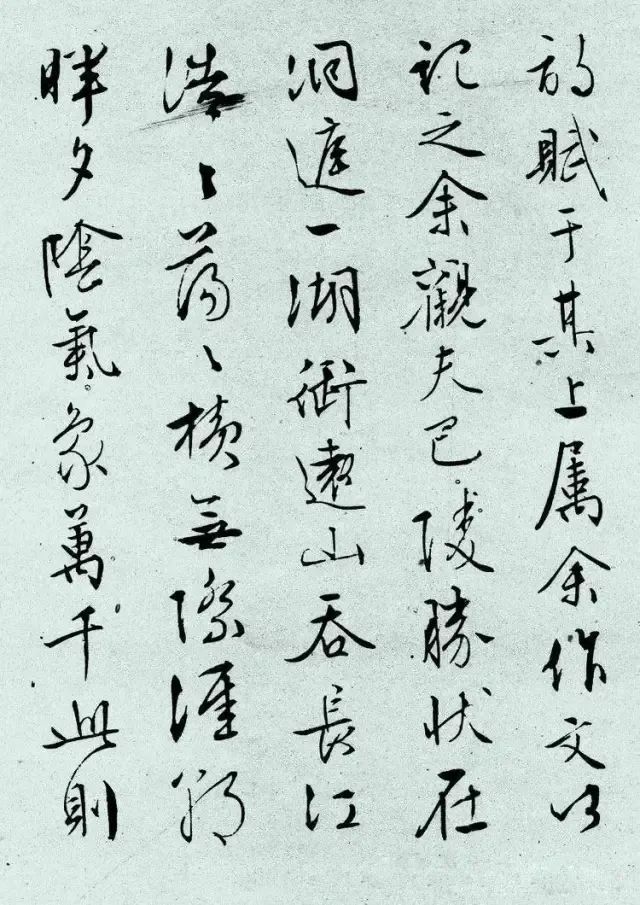 詩賦于其上属余作文以
記之余觀夫巴陵勝状在
洞庭一湖銜遠山吞長江
浩〻蕩〻橫無際涯朝
暉夕陰氣象萬千此則